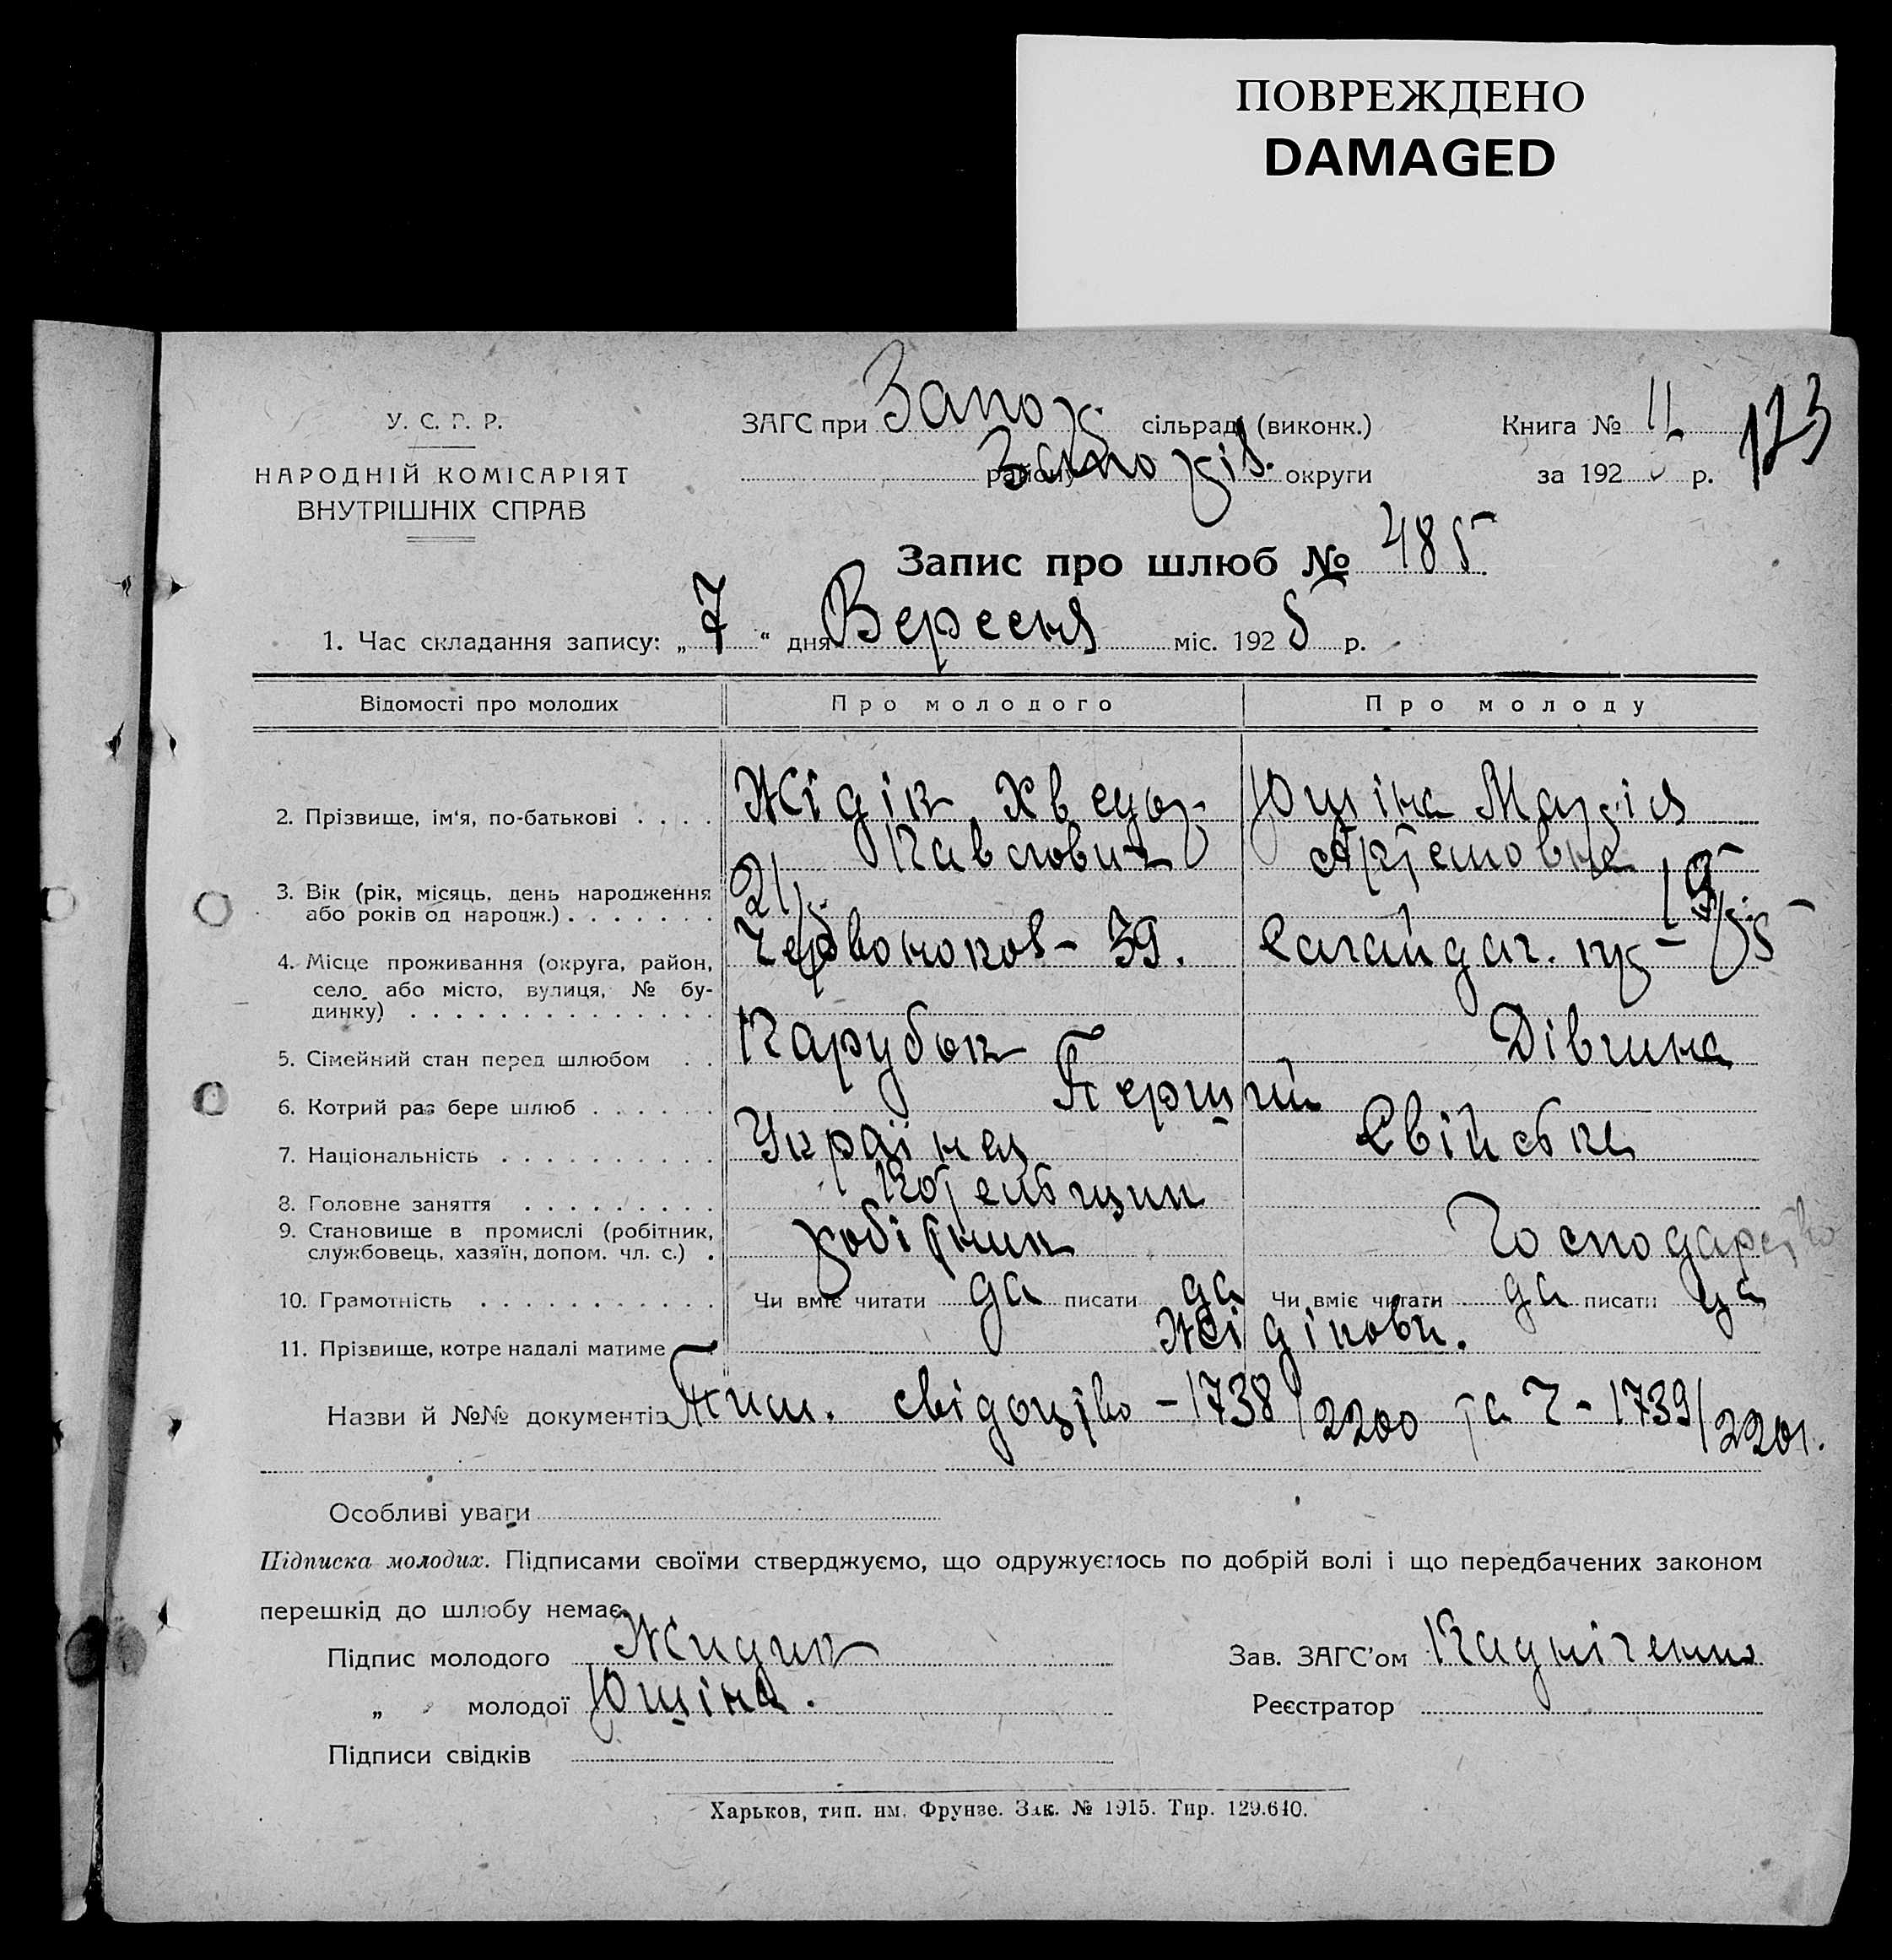 ПОВРЕЖДЕНО
DAMAGED
У. С. Р. Р.
НАРОДНІЙ КОМІСАРІЯТ
ВНУТРІШНІХ СПРАВ
ЗАГС при Запоріз. сільраді (виконк.)
району Запоріз. округи
Книга № 11
за 192 р.
123
Запис про шлюб № 485
1. Час складання запису: „7“ дня Вересня міс. 1925 р.
Відомості про молодих
Про молодого
Про молоду
2. Прізвище, ім'я, по-батькові . . . .
Жідік Хведор
Павлович
Юшіна Марія
Артемовна
3. Вік (рік, місяць, день народження
або років од народж.) . . . . . . .
21 р.
19 р.
4. Місце проживання (округа, район,
село, або місто, вулиця, № бу-
динку) . . . . . . . . . . . . . .
Червоноков - 39.
Сагайдач.
5. Сімейний стан перед шлюбом . .
Парубок
Дівчина
6. Котрий раз бере шлюб . . . . . .
Перший
7. Національність . . . . . . . . . .
Українец
8. Головне заняття . . . . . . . . .
Котельщик
9. Становище в промислі (робітник,
службовець, хазяїн, допом. чл. с.) .
робітник
Господарство
10. Грамотність . . . . . . . . . . .
Чи вміє читати да писати да
Чи вміє читати да писати да
11. Прізвище, котре надалі матиме
Жідікови.
Назви й №№ документів Тим. свідоцтво - 1738/2200 та Ч - 1739/2201.
Особливі уваги
Підписка молодих. Підписами своїми стверджуємо, що одружуємось по добрій волі і що передбачених законом
перешкід до шлюбу немає.
Підпис молодого Жидик
„ молодої Юшіна.
Підписи свідків
Зав. ЗАГС'ом
Реєстратор
Харьков, тип. им. Фрунзе. Зак. № 1915. Тир. 129.640.